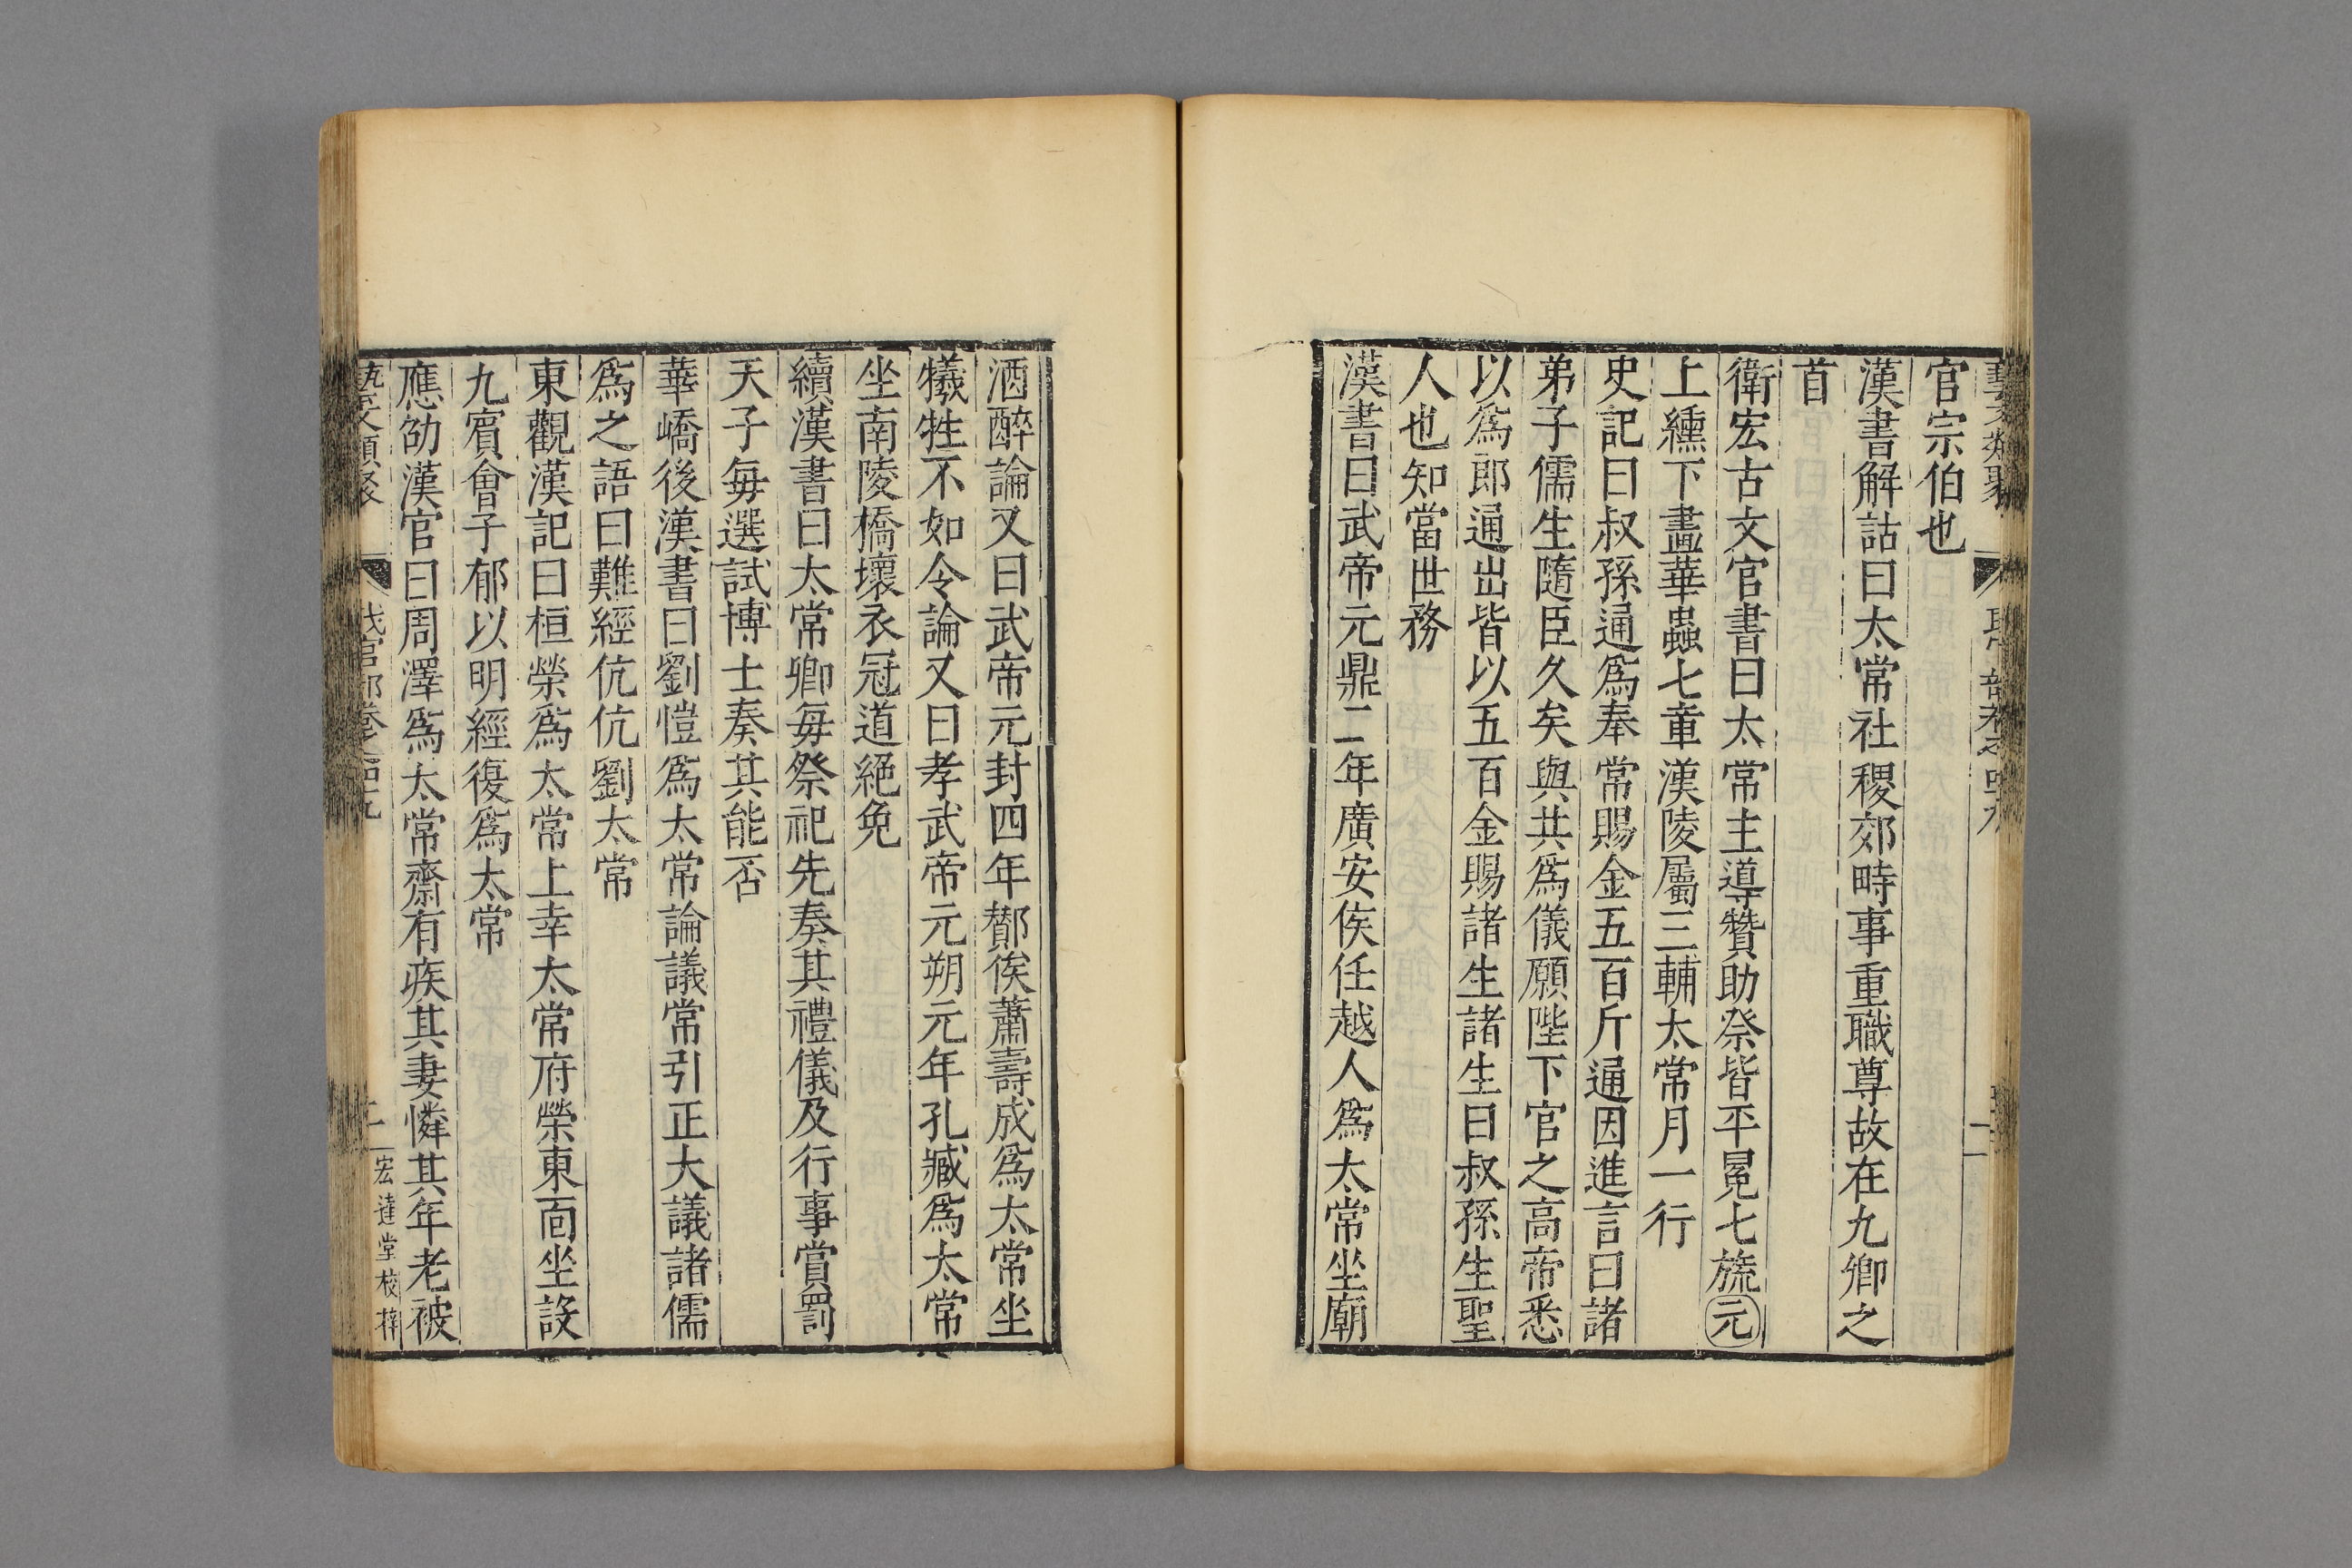 官宗伯也
漢書解詁曰太常社稷郊畤事重職尊故在九卿之
首
衛宏古文官書曰太常主導贊助祭皆平冕七旒元
上纁下畫華蟲七章漢陵屬三輔太常月一行
史記曰叔孫通爲奉常賜金五百斤通因進言曰諸
弟子儒生隨臣久矣與共爲儀願陛下官之高帝悉
以爲郎通出皆以五百金賜諸生諸生曰叔孫生聖
人也知當世務
漢書曰武帝元鼎二年廣安侯任越人爲太常坐廟
酒醉論又曰武帝元封四年酇侯蕭壽成爲太常坐
犧牲不如令論又曰孝武帝元朔元年孔臧爲太常
坐南陵橋壞衣冠道絕免
續漢書曰太常卿每祭祀先奏其禮儀及行事賞罰
天子每選試博士奏其能否
華嶠後漢書曰劉愷爲太常論議常引正大議諸儒
爲之語曰難經伉伉劉太常
東觀漢記曰桓榮爲太常上幸太常府榮東面坐設
九賓會子郁以明經復爲太常
應劭漢官曰周澤爲太常齋有疾其妻憐其年老被
藝文類聚
卷之四十九
二
宏達堂校梓